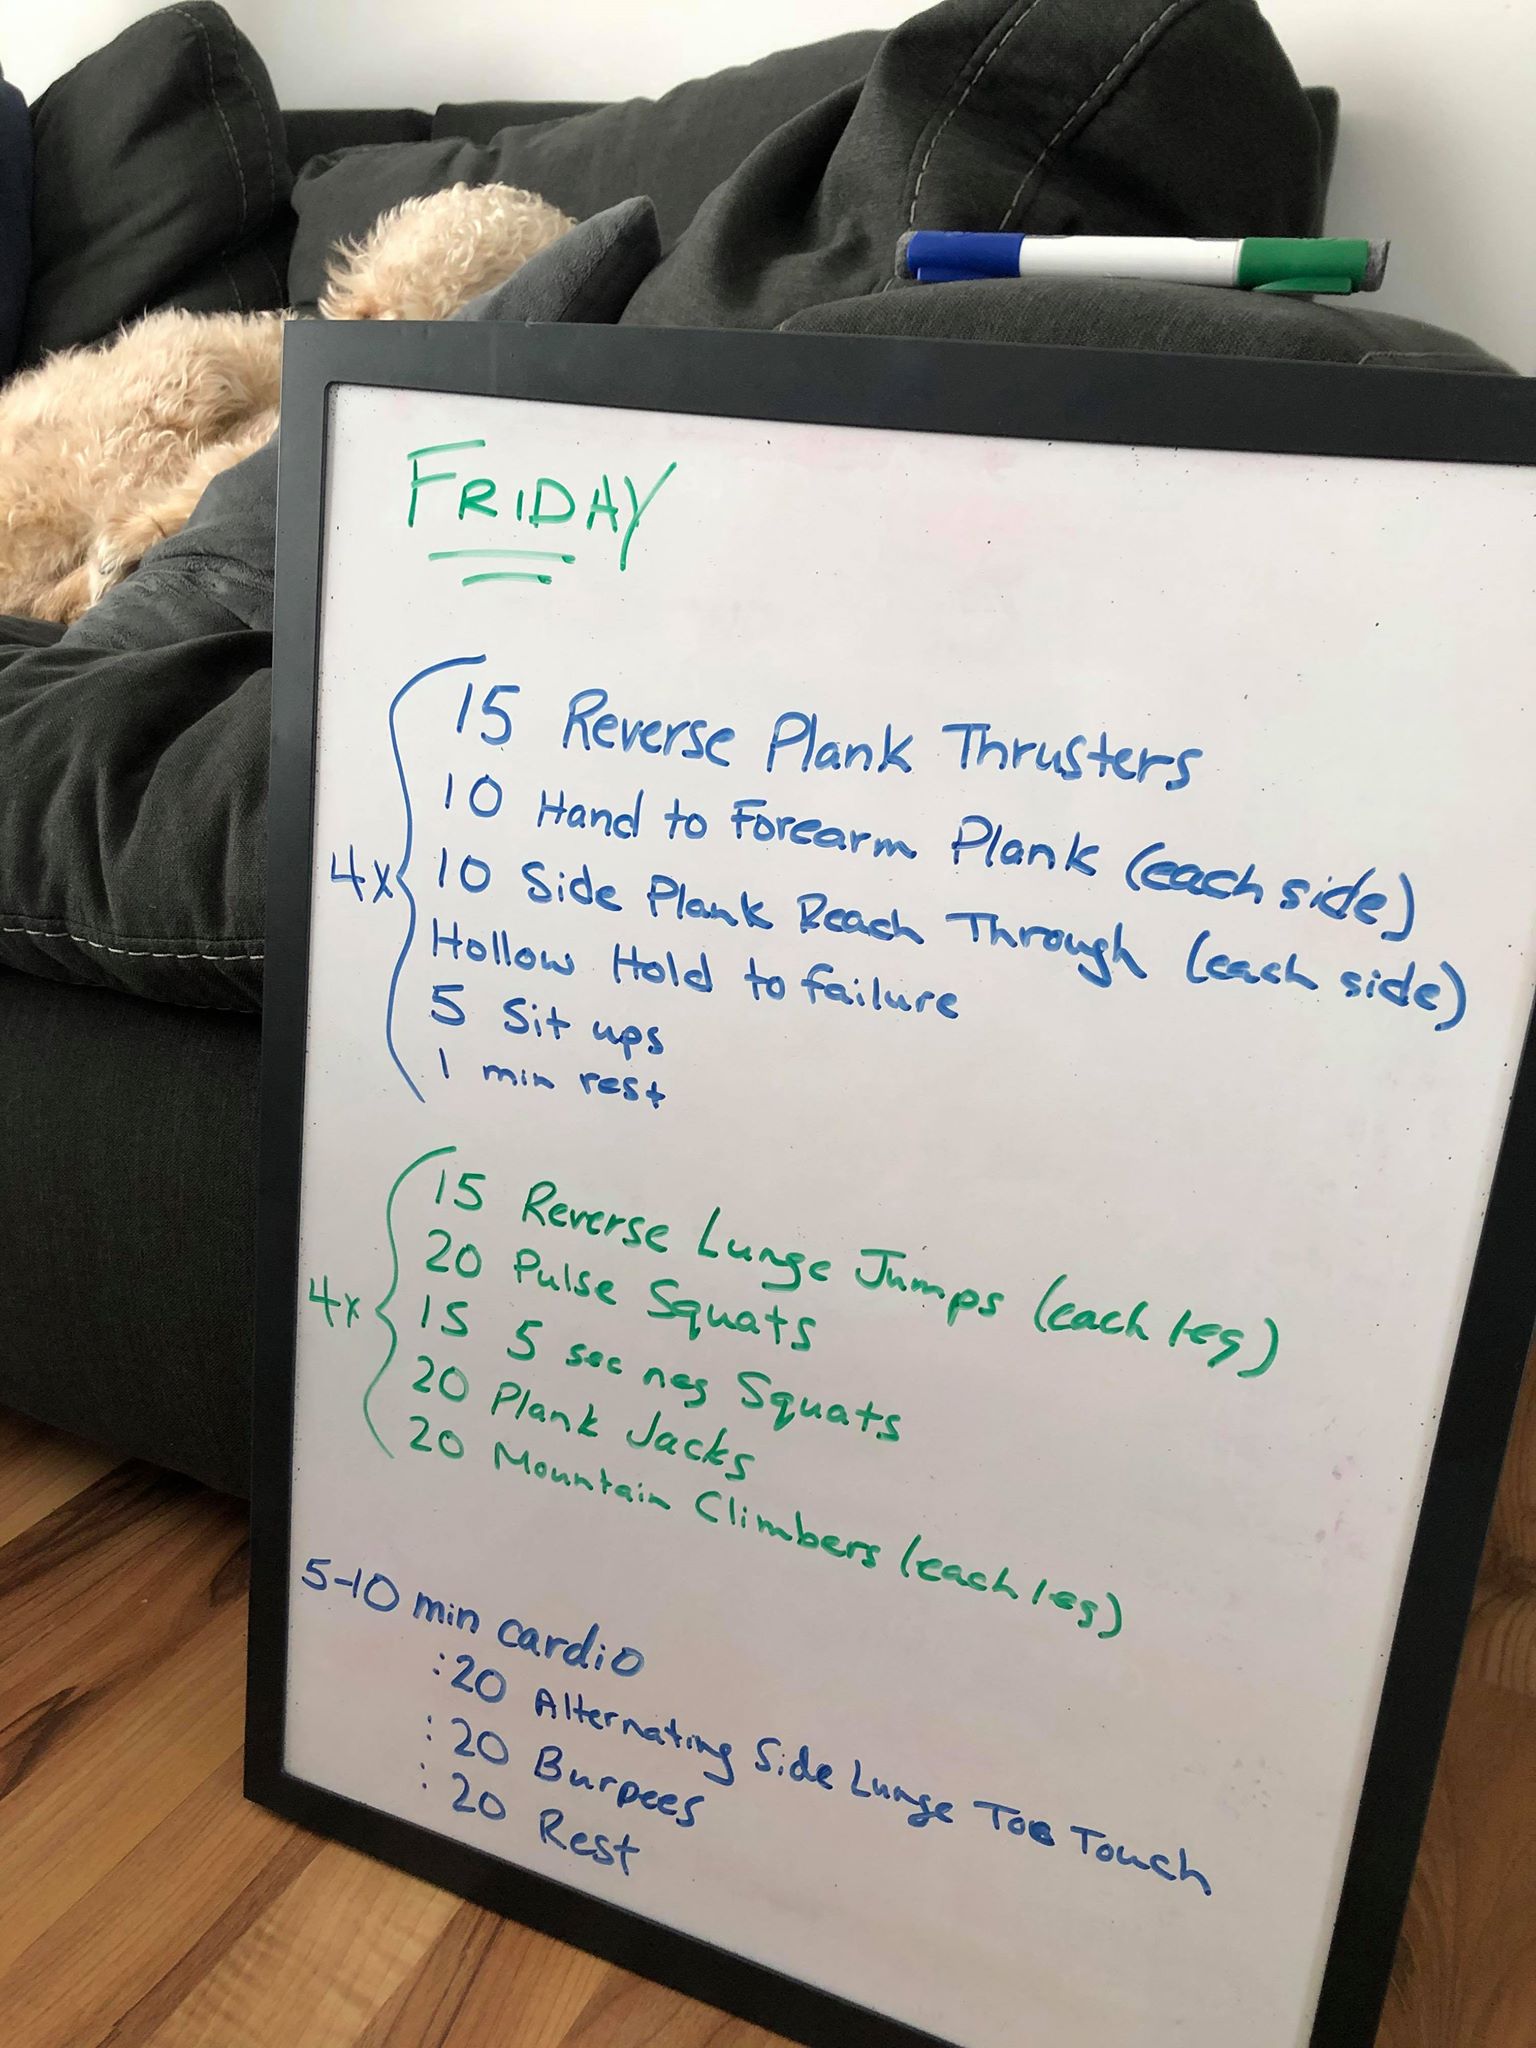 FRIDAY
15 Reverse Plank Thrusters
10 Hand to Forearm Plank (each side)
4x 10 Side Plank Reach Through (each side)
Hollow Hold to failure
5 Sit ups
1 min rest
15 Reverse Lunge Jumps (each leg)
20 Pulse Squats
4x 15 5 sec neg Squats
20 Plank Jacks
20 Mountain Climbers (each leg)
5-10 min cardio
:20 Alternating Side Lunge Toe Touch
:20 Burpees
:20 Rest